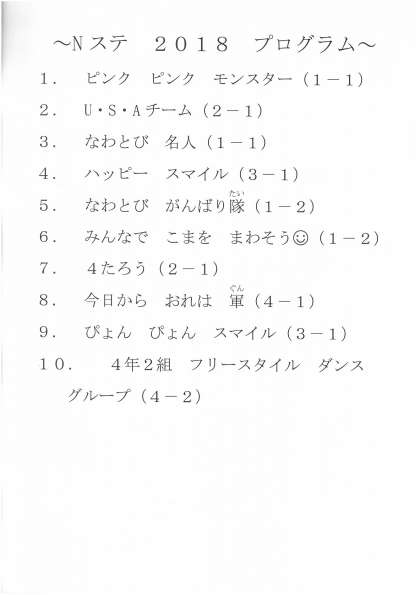 ～Nステ　２０１８　プログラム～
１．　ピンク　ピンク　モンスター（１－１）
２．　U・S・Aチーム（２－１）
３．　なわとび　名人（１－１）
４．　ハッピー　スマイル（３－１）
たい
５．　なわとび　がんばり隊（１－２）
６．　みんなで　こまを　まわそう☺（１－２）
７．　４たろう（２－１）
ぐん
８．　今日から　おれは　軍（４－１）
９．　ぴょん　ぴょん　スマイル（３－１）
１０．　４年２組　フリースタイル　ダンス
グループ（４－２）